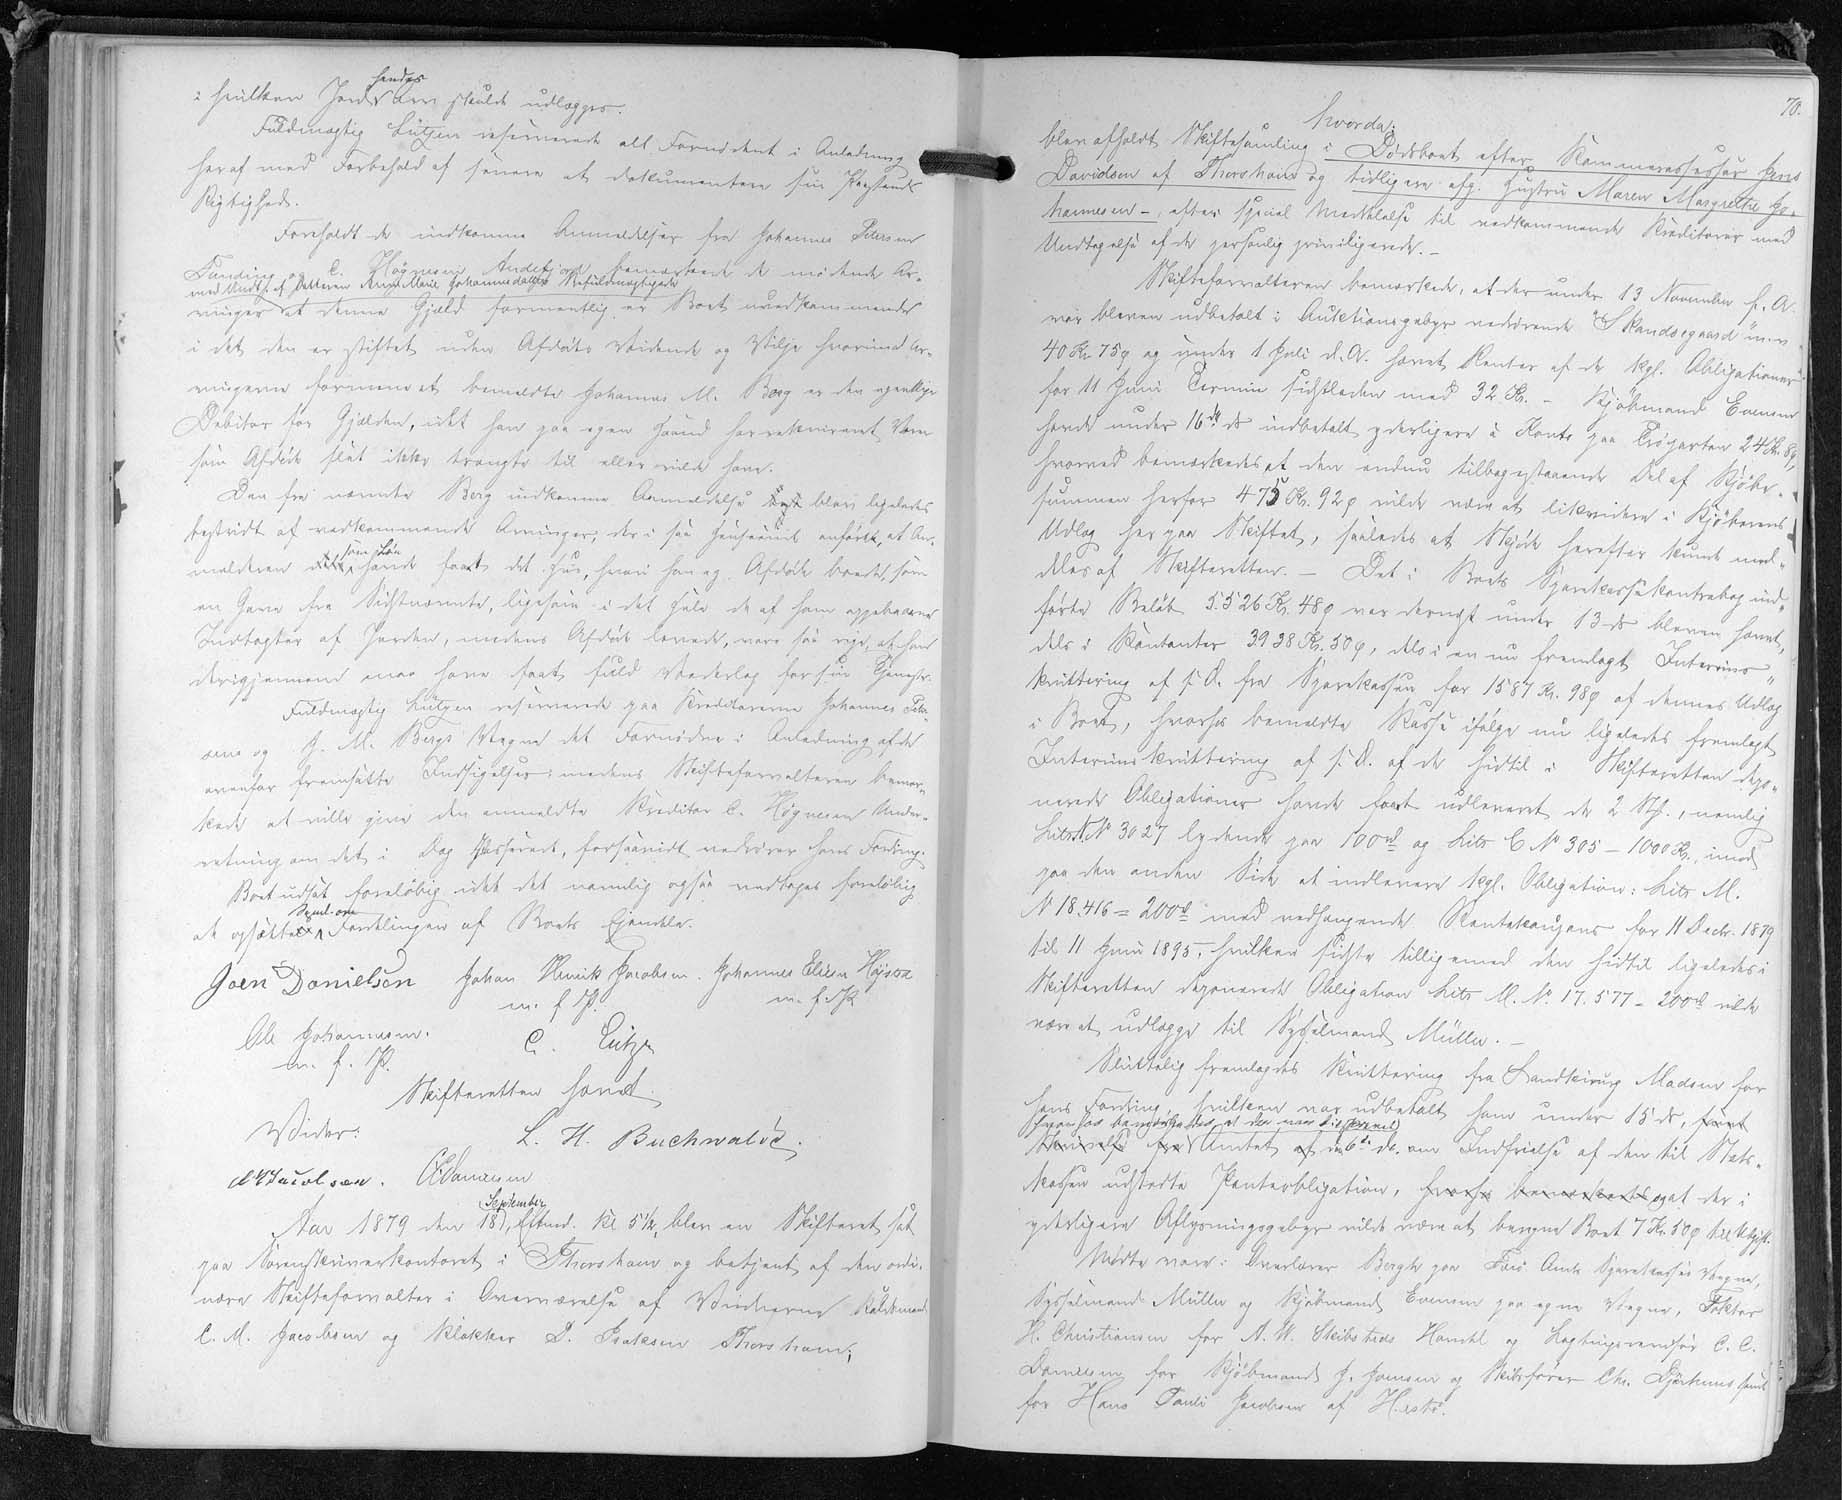 hendes
i hvilken Jord den skulde udlægges.
Fuldmægtig Lützen reserverede alt Fornødent i Anledning
heraf med Forbehold af senere at dokumentere sin Paastands
Rigtighed.
Foreholdt de indkomne Anmeldelser fra Johannes Petersen
Funding og C. Høgnesen Andefjord bemærkede de mødende Ar-
med Undt. af Datteren Anne Marie Johannesdatters Befuldmægtigede
vinger at denne Gjæld formentlig er Boet uvedkommende
i det den er stiftet uden Afdødes Vidende og Vilje hvorimod Ar-
vingerne formene at bemeldte Johannes M. Berg er den egentlige
Debitor for Gjælden, idet han paa egen Haand har rekvireret Varer
som Afdøde slet ikke trængte til eller vilde have.
Den fra nævnte Berg indkomne Anmeldelse blev ligeledes
bestridt af vedkommende Arvinger, der i saa Henseende anførte, at An-
som Løn
melderen havde faaet det Huus, hvori han og Afdøde boede, som
en Gave fra Sidstnævnte, ligesom i det Hele de af ham oppebaarne
Indtægter af Jorden, medens Afdøde levede, vare saa rige, at han
derigjennem maa have faaet fuld Vederlag for sin Tjeneste.
Fuldmægtig Lützen reserverede paa Kreditorerne Johannes Peter-
sens og J. M. Bergs Vegne det Fornødne i Anledning af de
ovenfor fremsatte Indsigelser; medens Skifteforvalteren bemær-
kede at ville give den anmeldte Kreditor C. Høgnesen Under-
retning om det i Dag Passerede, forsaavidt vedrører hans Fordring.
Boet udsat foreløbig idet det nemlig ogsaa vedtoges foreløbig
at opsætte Fordelingen af Boets Ejendele.
Joen Danielsen Johan Henrik Jacobsen. Johannes Eliesen Højsted
m. f. P. m. f. P.
Ole Johannesen.
m. f. P. C. Lützen
Skifteretten hævet
Vider: L. H. Buchwaldt.
CMJacobsen. Danielsen
September
Aar 1879 den 18, Eftmd. Kl 5½, blev en Skifteret sat
paa Sorenskriverkontoret i Thorshavn og betjent af den ordi-
nære Skifteforvalter i Overværelse af Vidnerne Raadsmand
C. M. Jacobsen og Klokker D. Isaksen Thorshavn;
70.
hvorda:
blev afholdt Skiftesamling i Dødsboet efter Kammerassessor Jens
Davidsen af Thorshavn og tidligere afg. Hustru Maren Margrethe Jo-
hannesen –, efter special Meddelelse til vedkommende Kreditorer med
Undtagelse af de personlig priviligerede. –
Skifteforvalteren bemærkede, at der under 13 November f. A.
var bleven udbetalt i Auktionsgebyr vedrørende "Skandsegaard"
40 Kr. 75ø og under 1 Juli d. A. hævet Renter af de kgl. Obligationer
for 11 Juni Termin sidstleden med 32 Kr. – Kjøbmand Evensen
havde under 16de ds indbetalt yderligere à Konto paa 24 Kr. 8ø,
hvorved bemærkedes at den endnu tilbagestaaende Del af Kjøbe-
summen herfor 475 Kr. 92ø vilde være at likvidere i Kjøberens
Udlæg her paa Skiftet, saaledes at Skjøde herefter kunde med-
deles af Skifteretten. – Det i Boets Sparekassekontrabog ind-
førte Beløb 5.526 Kr. 48ø var dernæst under 13 ds bleven hævet,
dels i Kontanter 3938 Kr. 50ø, dels i en nu fremlagt Interims-
kvittering af s. D. fra Sparekassen for 1587 Kr. 98ø af dennes Udlæg
i Boet, hvorhos bemeldte Kasse ifølge nu ligeledes fremlagt
Interimskvittering af s. D. af de hidtil i Skifteretten depo-
nerede Obligationer havde faaet udleveret de 2 Stk., nemlig
Litr. N No 3027 lydende paa 100rd og Litr C No 305 – 1000 Kr., imod
paa den anden Side at indlevere kgl. Obligation: Litr M.
No 18.416 = 200rd med vedhængende Rentekupons for 11 Decbr. 1879
til 11 Juni 1895, hvilken sidste tilligemed den hidtil ligeledes i
Skifteretten deponerede Obligation Litr M. No. 17.577 – 200rd vilde
være at udlægge til Sysselmand Müller. –
Sluttelig fremlagdes Kvittering fra Landkirurg Madsen for
hans Fordring, hvilken var udbetalt ham under 15 ds,
hvorhos bemærkedes, at der var tilskrevet
Amtet under 6te ds. om Indfrielse af den til Stats-
kassen udstedte Panteobligation, hvorhos bemærkedes og at der i
yderligere Aflysningsgebyr vilde være at beregne Boet 7 Kr. 50ø til Udgift.
Mødte vare: Overlærer Bergh paa Færø Amts Sparekasses Vegne,
Sysselmand Müller og Kjøbmand Evensen paa egne Vegne, Faktor
H. Christiansen for A. W. Skibsteds Handel og Lagtingsmand C. C.
Danielsen for Kjøbmand J. Joensen og Skibsfører Chr. Djurhuus samt
for Hans Pauli Jacobsen af Hestø.